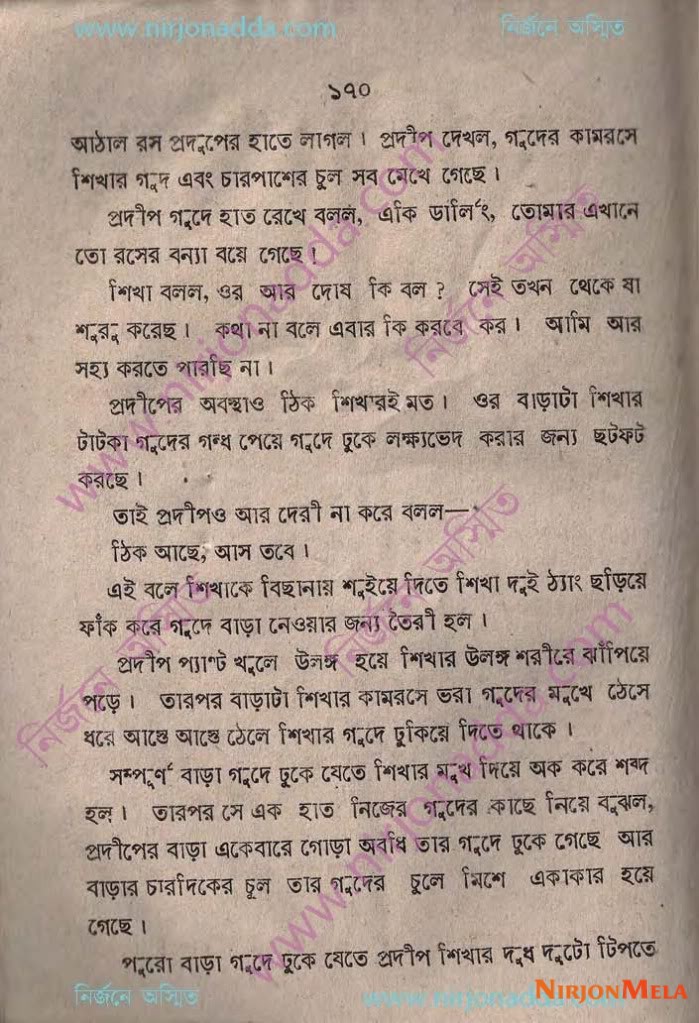 www.nirjonadda.com
নির্জনে অস্মিত
১৭০
আঠাল রস প্রদীপের হাতে লাগল। প্রদীপ দেখল, গুদের কামরসে
শিখার গুদ এবং চারপাশের চুল সব মেখে গেছে।
প্রদীপ গুদে হাত রেখে বলল, একি ডার্লিং, তোমার এখানে
তো রসের বন্যা বয়ে গেছে!
শিখা বলল, ওর আর দোষ কি বল? সেই তখন থেকে যা
শুরু করেছ। কথা না বলে এবার কি করবে কর। আমি আর
সহ্য করতে পারছি না।
প্রদীপের অবস্থাও ঠিক শিখারই মত। ওর বাড়াটা শিখার
টাটকা গুদের গন্ধ পেয়ে গুদে ঢুকে লক্ষ্যভেদ করার জন্য ছটফট
করছে।
তাই প্রদীপও আর দেরী না করে বলল—
ঠিক আছে, আস তবে।
এই বলে শিখাকে বিছানায় শুইয়ে দিতে শিখা দুই ঠ্যাং ছড়িয়ে
ফাঁক করে গুদে বাড়া নেওয়ার জন্য তৈরী হল।
প্রদীপ প্যান্ট খুলে উলঙ্গ হয়ে শিখার উলঙ্গ শরীরে ঝাঁপিয়ে
পড়ে। তারপর বাড়াটা শিখার কামরসে ভরা গুদের মুখে ঠেসে
ধরে আস্তে আস্তে ঠেলে শিখার গুদে ঢুকিয়ে দিতে থাকে।
সম্পূর্ণ বাড়া গুদে ঢুকে যেতে শিখার মুখ দিয়ে অক করে শব্দ
হল। তারপর সে এক হাত নিজের গুদের কাছে নিয়ে বুঝল,
প্রদীপের বাড়া একেবারে গোড়া অবধি তার গুদে ঢুকে গেছে আর
বাড়ার চারদিকের চুল তার গুদের চুলে মিশে একাকার হয়ে
গেছে।
পুরো বাড়া গুদে ঢুকে যেতে প্রদীপ শিখার দুধ দুটো টিপতে
নির্জনে অস্মিত
www.nirjonadda.com
NIRJONMELA